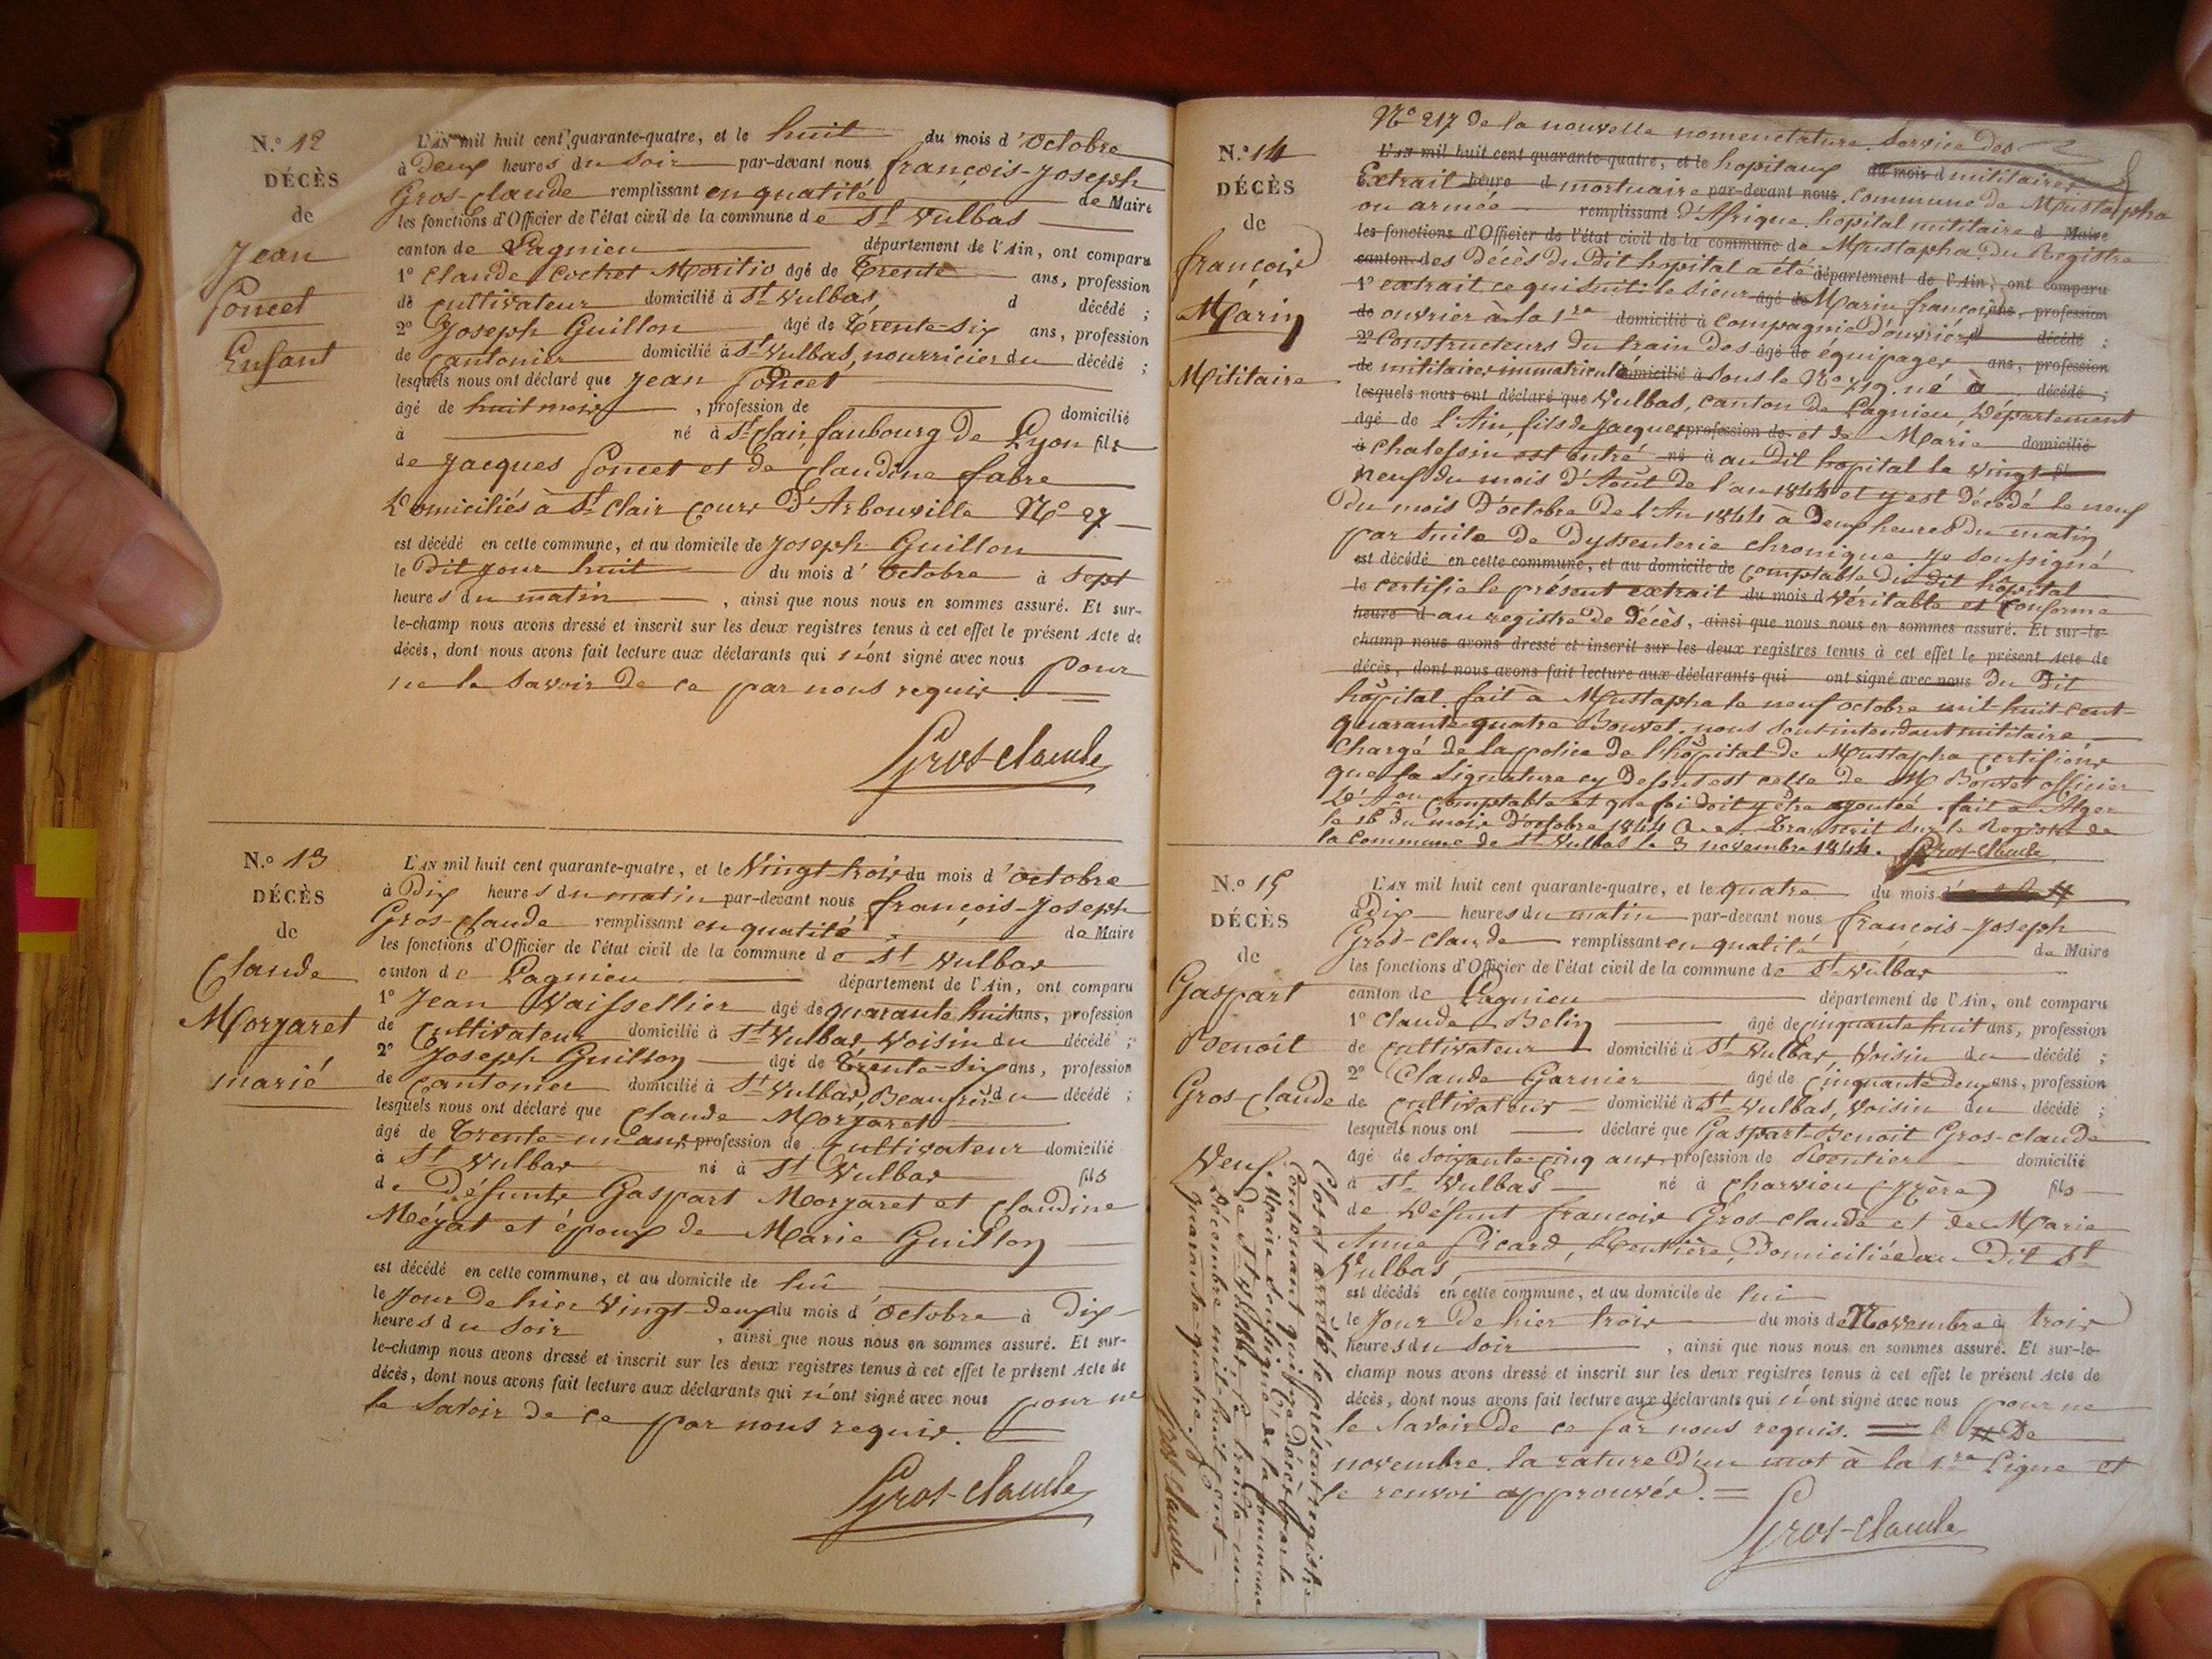 N.° 12
DÉCÈS
de
Jean
Poncet
Enfant
L'AN mil huit cent quarante-quatre, et le huit du mois d'octobre
à deux heures du soir par-devant nous françois-joseph
Gros-claude remplissant en qualité de Maire
les fonctions d'Officier de l'état civil de la commune de St Vulbas
canton de Lagnieu département de l'Ain, ont comparu
1° Claude Cochet Moritio âgé de Trente ans, profession
de cultivateur domicilié à St Vulbas, d décédé ;
2° Joseph Guillon âgé de Trente-Six ans, profession
de Cantonier domicilié à St Vulbas, nourricier du décédé ;
lesquels nous ont déclaré que Jean Poncet
âgé de huit mois , profession de domicilié
à né à St Clair, faubourg de Lyon fils
de Jacques Poncet et de Claudine fabre
Domiciliés à St Clair cours D'Arbouville N° 27
est décédé en cette commune, et au domicile de Joseph Guillon
le Dit jour huit du mois d'octobre à Sept
heures du matin , ainsi que nous nous en sommes assuré. Et sur-
le-champ nous avons dressé et inscrit sur les deux registres tenus à cet effet le présent Acte de
décès, dont nous avons fait lecture aux déclarants qui n'ont signé avec nous pour
ne le Savoir de ce par nous requis.
Gros-claude
N.° 13
DÉCÈS
de
Claude
Morgaret
marié
L'AN mil huit cent quarante-quatre, et le Vingt-trois du mois d'octobre
à Dix heures du matin par-devant nous françois-joseph
Gros-claude remplissant en qualité de Maire
les fonctions d'Officier de l'état civil de la commune de St Vulbas
canton de Lagnieu département de l'Ain, ont comparu
1° Jean Vaissellier âgé de quarante huit ans, profession
de Cultivateur domicilié à St Vulbas, Voisin du décédé ;
2° Joseph Guillon âgé de Trente-Six ans, profession
de Cantonier domicilié à St Vulbas, Beaufrère du décédé ;
lesquels nous ont déclaré que Claude Morgaret
âgé de Trente-un ans, profession de Cultivateur domicilié
à St Vulbas né à St Vulbas fils
de Défunts Gaspart Morgaret et Claudine
Mégat et époux de Marie Guillon
est décédé en cette commune, et au domicile de lui
le Jour de hier Vingt-deux du mois d'octobre à Dix
heures du Soir , ainsi que nous nous en sommes assuré. Et sur-
le-champ nous avons dressé et inscrit sur les deux registres tenus à cet effet le présent Acte de
décès, dont nous avons fait lecture aux déclarants qui n'ont signé avec nous pour ne
le Savoir de ce par nous requis.
Gros-claude
N.° 14
DÉCÈS
de
françois
Marin
Militaire
N° 217 de la nouvelle nomenclature. Service des
L'AN mil huit cent quarante-quatre, et le hopitaux du mois d militaires
Extrait heure d mortuaire par-devant nous Commune de Mustapha
ou armée remplissant d'Afrique. hopital militaire d Maire
les fonctions d'Officier de l'état civil de la commune de Mustapha. Du Registre
canton des Décès du dit hopital a été département de l'Ain, ont comparu
1° extrait ce qui suit: le Sieur âgé de Marin françois ans, profession
de ouvrier à la 1re domicilié à compagnie d'ouvriers d décédé ;
2° Constructeurs du train des âgé de équipages ans, profession
de militaires immatriculé domicilié à Sous le N° 719. né à décédé ;
lesquels nous ont déclaré que Vulbas, canton de Lagnieu, Département
âgé de l'Ain, fils de Jacques profession de et de Marie domicilié
à Chalessin, est entré né à au dit hopital le Vingt fil
neuf du mois d'Août de l'an 1844 et y est décédé le neuf
du mois D'octobre de l'An 1844 à deux heures du matin
par suite de Dyssenterie chronique. Je soussigné
est décédé en cette commune, et au domicile de comptable du dit hôpital
le certifie le présent extrait du mois d Véritable et Conforme
heure d au registre de Décès, ainsi que nous nous en sommes assuré. Et sur-le-
champ nous avons dressé et inscrit sur les deux registres tenus à cet effet le présent Acte de
décès, dont nous avons fait lecture aux déclarants qui ont signé avec nous du dit
hôpital. fait à Mustapha le neuf octobre mil-huit-cent-
quarante-quatre Bouvet. nous sous intendant militaire,
Chargé de la police de l'hôpital de Mustapha certifions
que la Signature cy dessus est celle de M Bouvet officier
D'Aon Comptable et que foi doit y être ajoutée. fait à Alger
le 16 du mois d'octobre 1844 Transcrit Sur le Registre de
la Commune de St Vulbas le 3 novembre 1844. Gros-claude
N.° 15
DÉCÈS
de
Gaspart
Benoit
Gros-claude
L'AN mil huit cent quarante-quatre, et le quatre du mois
à Dix heures du matin par-devant nous françois-joseph
Gros-claude remplissant en qualité de Maire
les fonctions d'Officier de l'état civil de la commune de St Vulbas
canton de Lagnieu département de l'Ain, ont comparu
1° Claude Belin âgé de cinquante huit ans, profession
de cultivateur domicilié à St Vulbas, Voisin du décédé ;
2° Claude Garnier âgé de Cinquante deux ans, profession
de Cultivateur domicilié à St Vulbas, Voisin du décédé ;
lesquels nous ont déclaré que Gaspart-Benoit Gros-claude
âgé de Soixante-cinq ans, profession de Rentier domicilié
à St Vulbas né à Charvieu (Isère) fils
de Defunt françois Gros-claude et de Marie
Anne Picard, Rentière, Domiciliée au Dit St
Vulbas,
est décédé en cette commune, et au domicile de lui
le Jour de hier trois du mois de Novembre à trois
heures du Soir , ainsi que nous nous en sommes assuré. Et sur-le-
champ nous avons dressé et inscrit sur les deux registres tenus à cet effet le présent Acte de
décès, dont nous avons fait lecture aux déclarants qui n'ont signé avec nous pour ne
le Savoir de ce par nous requis. # De
novembre. la rature d'un mot à la 1re Ligne et
le renvoi approuvés.
Gros-claude
Veuf
Clos et arrêté le présent registre
Contenant quinze décès par le
Maire soussigné de la Commune
de St Vulbas, le trente-un
Décembre mil-huit-cent-
quarante-quatre.
Gros-claude